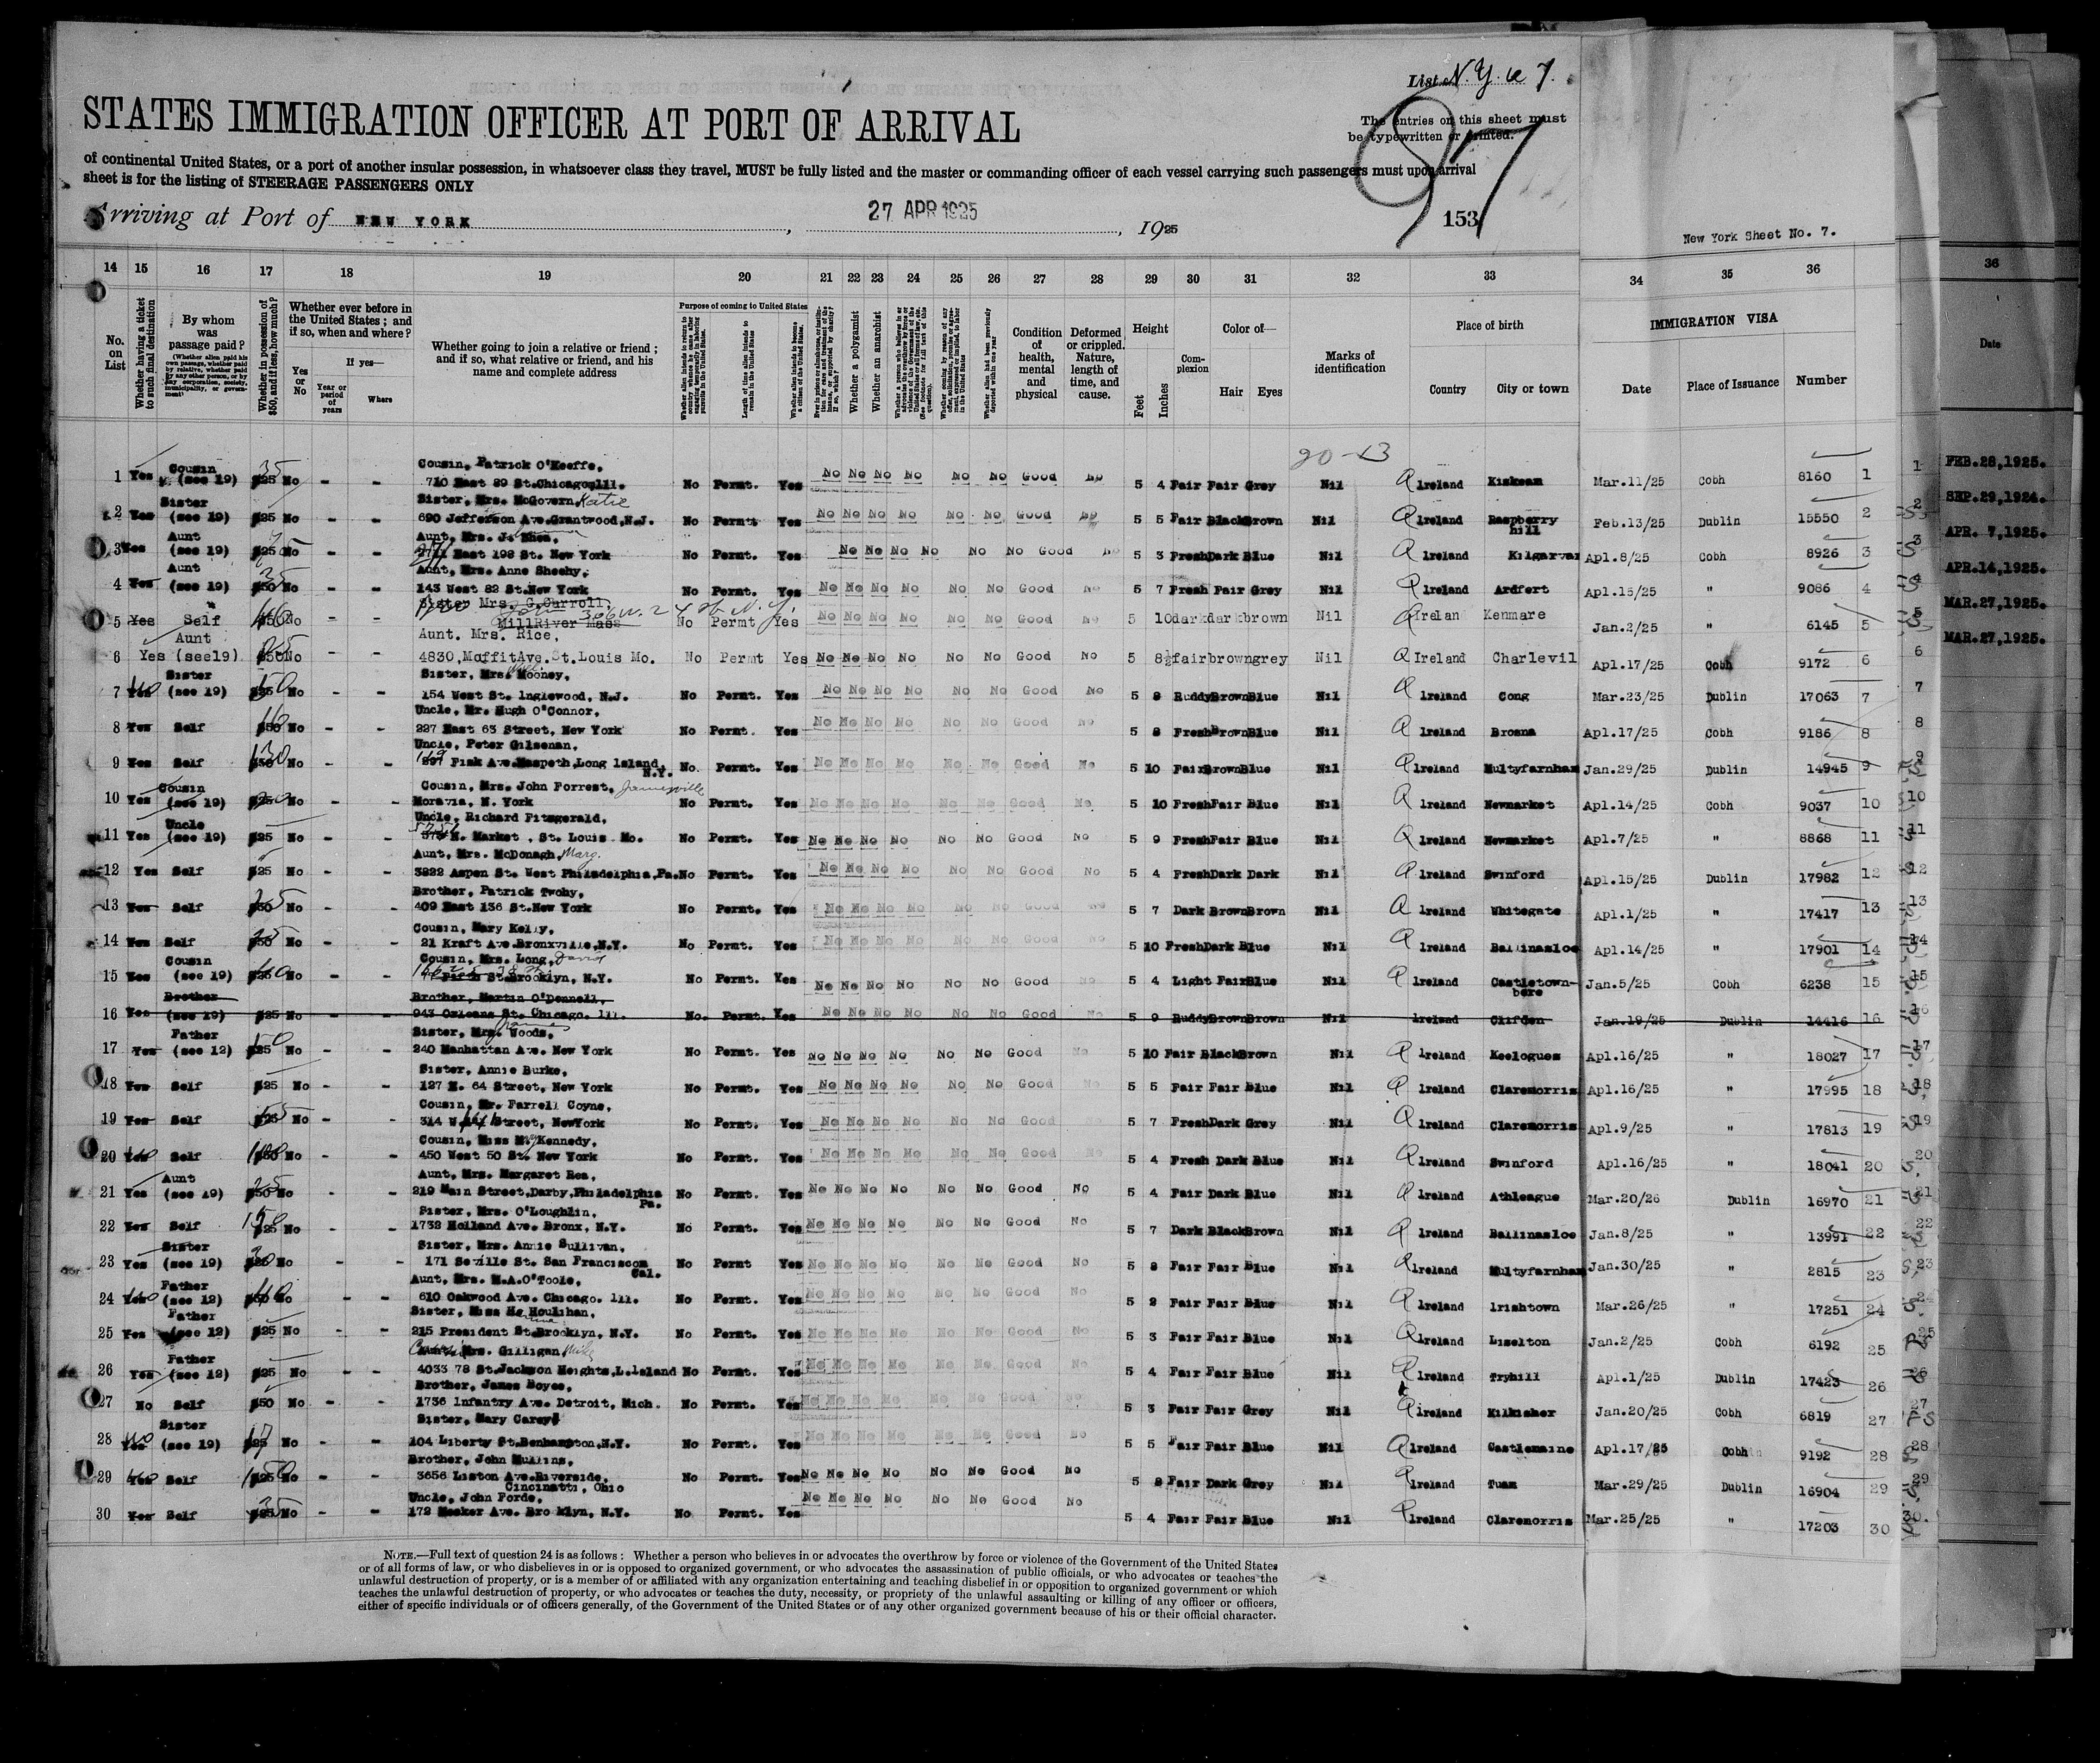 List N.Y. 7.
STATES IMMIGRATION OFFICER AT PORT OF ARRIVAL
The entries on this sheet must
be typewritten or printed.
97
of continental United States, or a port of another insular possession, in whatsoever class they travel, MUST be fully listed and the master or commanding officer of each vessel carrying such passengers must upon arrival
sheet is for the listing of STEERAGE PASSENGERS ONLY
Arriving at Port of NEW YORK, 27 APR 1925, 1925
153
New York Sheet No. 7.
14 15 16 17 18 19 20 21 22 23 24 25 26 27 28 29 30 31 32 33 34 35 36
36
No. on List
Whether having a ticket to such final destination
By whom was passage paid?
(Whether alien paid his own passage, whether paid by relative, whether paid by any other person, or by any corporation, society, municipality, or government)
Whether in possession of $50, and if less, how much?
Whether ever before in the United States; and if so, when and where?
Yes or No
If yes—
Year or period of years
Where
Whether going to join a relative or friend; and if so, what relative or friend, and his name and complete address
Purpose of coming to United States
Length of time alien intends to remain in the United States
Whether alien intends to become a citizen of the United States
Whether a polygamist
Whether an anarchist
Condition of health, mental and physical
Deformed or crippled. Nature, length of time, and cause.
Height
Feet
Inches
Complexion
Color of—
Hair Eyes
Marks of identification
Place of birth
Country City or town
IMMIGRATION VISA
Date Place of Issuance Number
Date
20-13
Cousin, Patrick O'Keeffe,
1 Yes Cousin (see 19) $25 No - - 710 East 29 St.Chicago,Ill. No Permt. Yes No No No No No No Good No 5 4 Fair Fair Grey Nil Ireland Kiskeam Mar.11/25 Cobh 8160 1 FEB.28,1925.
Sister, Mrs. McGovern, Katie
2 Yes Sister (see 19) $25 No - - 690 Jefferson Ave.Grantwood,N.J. No Permt. Yes No No No No No No Good No 5 5 Fair Black Brown Nil Ireland Raspberry hill Feb.13/25 Dublin 15550 2 SEP.29,1924.
Aunt, Mrs. J. Shea,
3 Yes Aunt (see 19) $25 No - - East 198 St. New York No Permt. Yes No No No No No No Good No 5 3 Fresh Dark Blue Nil Ireland Kilgarvan Apl.8/25 Cobh 8926 3 APR. 7,1925.
Aunt, Mrs. Anne Sheehy,
4 Yes Aunt (see 19) $50 No - - 143 West 82 St.New York No Permt. Yes No No No No No No Good No 5 7 Fresh Fair Grey Nil Ireland Ardfert Apl.15/25 " 9086 4 APR.14,1925.
Sister Mrs. G.Carroll,
5 Yes Self $50 No - - MillRiver Mass No Permt Yes No No No No No No Good No 5 10 dark dark brown Nil Irelan Kenmare Jan.2/25 " 6145 5 MAR.27,1925.
Aunt. Mrs. Rice,
6 Yes Aunt (see19) $50 No 4830,MoffitAve.St.Louis Mo. No Permt Yes No No No No No No Good No 5 8½ fair brown grey Nil Ireland Charlevil Apl.17/25 Cobh 9172 6 MAR.27,1925.
Sister, Mrs. Mooney,
7 Yes Sister (see 19) $25 No - - 154 West St. Inglewood, N.J. No Permt. Yes No No No No No No Good No 5 8 Ruddy Brown Blue Nil Ireland Cong Mar.23/25 Dublin 17063 7
Uncle, Mr. Hugh O'Connor,
8 Yes Self $50 No - - 227 East 63 Street, New York No Permt. Yes No No No No No No Good No 5 8 Fresh Brown Blue Nil Ireland Brosna Apl.17/25 Cobh 9186 8
Uncle, Peter Gilsenan,
9 Yes Self $50 No - - Fisk Ave.Maspeth,Long Island, N.Y. No. Permt. Yes No No No No No No Good No 5 10 Fair Brown Blue Nil Ireland Multyfarnham Jan.29/25 Dublin 14945 9
Cousin, Mrs. John Forrest, Jamesville
10 Yes Cousin (see 19) $25 No - - Moravia, N. York No Permt. Yes No No No No No No Good No 5 10 Fresh Fair Blue Nil Ireland Newmarket Apl.14/25 Cobh 9037 10
Uncle, Richard Fitzgerald,
11 Yes Uncle (see 19) $25 No - - N. Market , St. Louis Mo. No Permt. Yes No No No No No No Good No 5 9 Fresh Fair Blue Nil Ireland Newmarket Apl.7/25 " 8868 11
Aunt, Mrs. McDonagh, Marg.
12 Yes Self $25 No - - 3822 Aspen St. West Philadelphia,Pa. No Permt. Yes No No No No No No Good No 5 4 Fresh Dark Dark Nil Ireland Swinford Apl.15/25 Dublin 17982 12
Brother, Patrick Twohy,
13 Yes Self $50 No - - 409 East 136 St.New York No Permt. Yes No No No No No No Good No 5 7 Dark Brown Brown Nil Ireland Whitegate Apl.1/25 " 17417 13
Cousin, Mary Kelly,
14 Yes Self $50 No - - 21 Kraft Ave.Bronxville,N.Y. No Permt. Yes No No No No No No Good No 5 10 Fresh Dark Blue Nil Ireland Ballinasloe Apl.14/25 " 17901 14
Cousin, Mrs. Long, David
15 Yes Cousin (see 19) No - - St.Brooklyn, N.Y. No Permt. Yes No No No No No No Good No 5 4 Light Fair Blue Nil Ireland Castletown-bere Jan.5/25 Cobh 6238 15
Brother, Martin O'Donnell,
16 Yes Brother (see 19) $25 No - - 943 Orleans St. Chicago. Ill. No. Permt. Yes No No No No No No Good No 5 9 Ruddy Brown Brown Nil Ireland Clifden Jan.19/25 Dublin 14416 16
Sister, Mrs. Woods, James
17 Yes Father (see 12) $25 No - - 240 Manhattan Ave. New York No Permt. Yes No No No No No No Good No 5 10 Fair Black Brown Nil Ireland Keelogues Apl.16/25 " 18027 17
Sister, Annie Burke,
18 Yes Self $25 No - - 127 E. 64 Street, New York No Permt. Yes No No No No No No Good No 5 5 Fair Fair Blue Nil Ireland Claremorris Apl.16/25 " 17995 18
Cousin, Mr. Farrell Coyne,
19 Yes Self $25 No - - 314 W. Street, NewYork No Permt. Yes No No No No No No Good No 5 7 Fresh Dark Grey Nil Ireland Claremorris Apl.9/25 " 17813 19
Cousin, Miss M. Kennedy,
20 Yes Self No - - 450 West 50 St. New York No Permt. Yes No No No No No No Good No 5 4 Fresh Dark Blue Nil Ireland Swinford Apl.16/25 " 18041 20
Aunt, Mrs. Margaret Rea,
21 Yes Aunt (see 19) $50 No - 219 Main Street,Darby,Philadelphia Pa. No Permt. Yes No No No No No No Good No 5 4 Fair Dark Blue Nil Ireland Athleague Mar.20/26 Dublin 16970 21
Sister, Mrs. O'Loughlin,
22 Yes Self $25 No - - 1732 Holland Ave. Bronx, N.Y. No Permt. Yes No No No No No No Good No 5 7 Dark Black Brown Nil Ireland Ballinasloe Jan.8/25 " 13991 22
Sister, Mrs. Annie Sullivan,
23 Yes Sister (see 19) No - - 171 Seville St. San Francisco Cal. No Permt Yes No No No No No No Good No 5 8 Fair Fair Blue Nil Ireland Multyfarnham Jan.30/25 " 2815 23
Aunt, Mrs. M.A.O'Toole,
24 Yes Father (see 12) No - - 610 Oakwood Ave. Chicago. Ill. No Permt. Yes No No No No No No Good No 5 8 Fair Fair Blue Nil Ireland Irishtown Mar.26/25 " 17251 24
Sister, Miss Houlihan,
25 Yes Father (see 12) $25 No - - 215 President St.Brooklyn, N.Y. No Permt. Yes No No No No No No Good No 5 3 Fair Fair Blue Nil Ireland Liselton Jan.2/25 Cobh 6192 25
Mrs. Gilligan, Mike
26 Yes Father (see 12) $25 No - - 4033 78 St.Jackson Heights,L.Island No Permt. Yes No No No No No No Good No 5 4 Fair Fair Blue Nil Ireland Tryhill Apl.1/25 Dublin 17423 26
Brother, James Boyce,
27 No Self $50 No - - 1736 Infantry Ave. Detroit, Mich. No Permt. Yes No No No No No No Good No 5 3 Fair Fair Grey Nil Ireland Kilkisher Jan.20/25 Cobh 6819 27
Sister, Mary Carey,
28 Yes Sister (see 19) $25 No - - 104 Liberty St.Benhampton,N.Y. No Permt. Yes No No No No No No Good No 5 5 Fair Fair Blue Nil Ireland Castlemaine Apl.17/25 Cobh 9192 28
Brother, John Mullins,
29 Yes Self $25 No - - 3656 Liston Ave.Riverside, Cincinatti, Ohio No Permt. Yes No No No No No No Good No 5 8 Fair Dark Grey Nil Ireland Tuam Mar.29/25 Dublin 16904 29
Uncle, John Forde,
30 Yes Self $25 No - - 172 Meeker Ave. Bro klyn, N.Y. No Permt. Yes No No No No No No Good No 5 4 Fair Fair Blue Nil Ireland Claremorris Mar.25/25 " 17203 30
NOTE.—Full text of question 24 is as follows: Whether a person who believes in or advocates the overthrow by force or violence of the Government of the United States
or of all forms of law, or who disbelieves in or is opposed to organized government, or who advocates the assassination of public officials, or who advocates or teaches the
unlawful destruction of property, or is a member of or affiliated with any organization entertaining and teaching disbelief in or opposition to organized government or which
teaches the unlawful destruction of property, or who advocates or teaches the duty, necessity, or propriety of the unlawful assaulting or killing of any officer or officers,
either of specific individuals or of officers generally, of the Government of the United States or of any other organized government because of his or their official character.